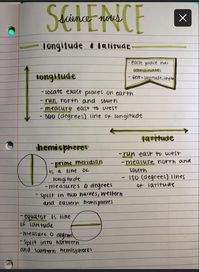 SCIENCE
science notes
longitude & latitude
- each globe has
- longitude
longitude
- locate exact places on earth
- run north and south
- measure east to west
- 360 (degrees) line of longitude
latitude
- run east to west
- measure north and
south
- 180 (degrees) lines
of latitude
hemispheres
- prime meridian
is a line of
longitude
- measures 0 degrees
- Split in two halves, western
and eastern hemispheres
- equator is line
of latitude
- measure 0 degrees
- Split into northern
and southern hemispheres